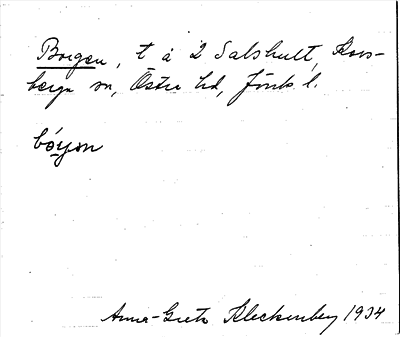 Borgen, t å 2 Salshult, Kors-
berga sn, Östra hd, Jönk. l.
bóyən
Anna-Greta Kleckenberg 1934